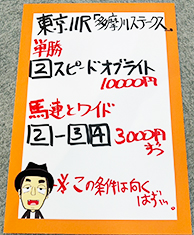 東京11R「多摩川ステークス」
単勝
②スピードオブライト
10000円
馬連とワイド
②-③④ 3000円
ずつ
※この条件は向く
はず…。